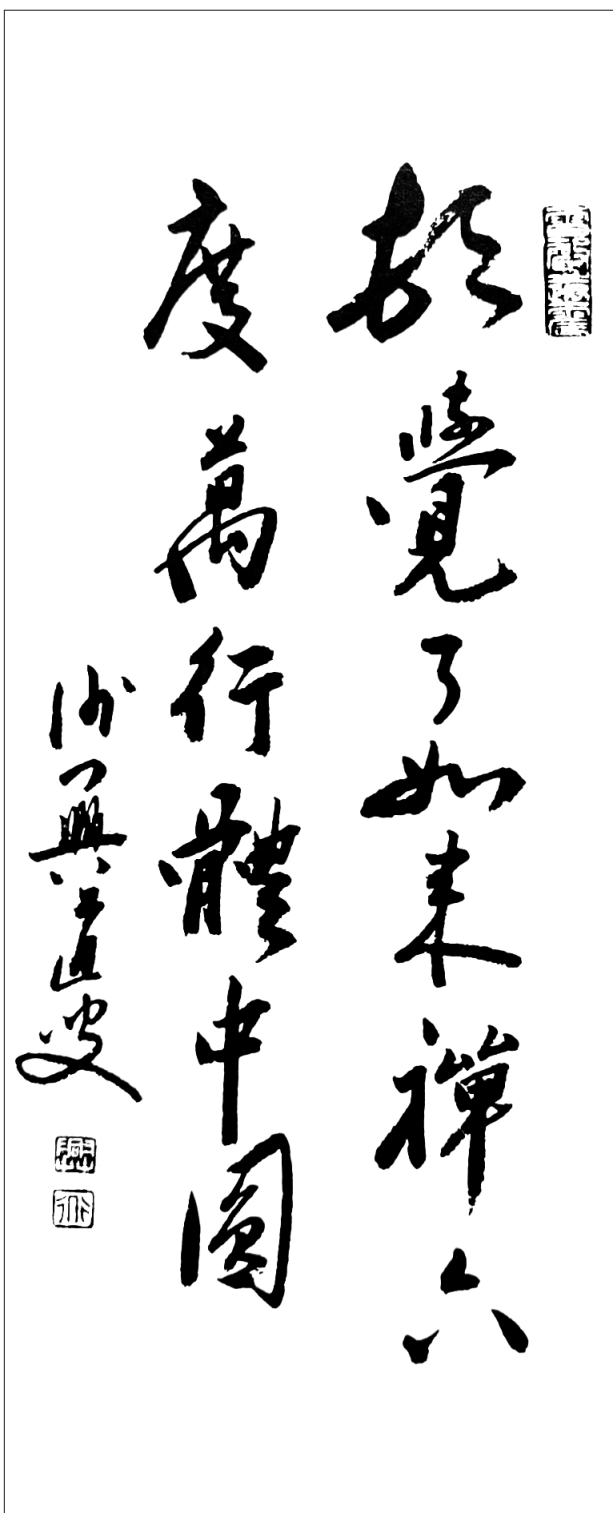 頓覺了如來禪六
度萬行體中圓
興叟